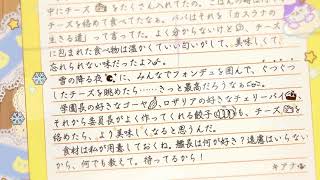 中にチーズをたくさん入れてたの。ごはんの時は
チーズを絡めて食べてたなぁ。パパはそれを「カスラナの
生きる道」って言ってた。よく分からないけど、チーズ
に包まれた食べ物は温かくていい匂いがして、美味しくて、
忘れられない味だったよ
雪の降る夜に、みんなでフォンデュを囲んで、ぐつぐつ
したチーズを眺めてたら……きっと最高だろうなぁ
学園長の好きなゴーヤ、ロザリアの好きなチェリーパイ、
それから委員長がよく作ってくれる餃子も、チーズを
絡めたら、より美味しくなると思うんだ。
食材は私が用意しておくね。艦長は何が好き?遠慮はいらない
から、何でも教えて。待ってるから!
キアナ